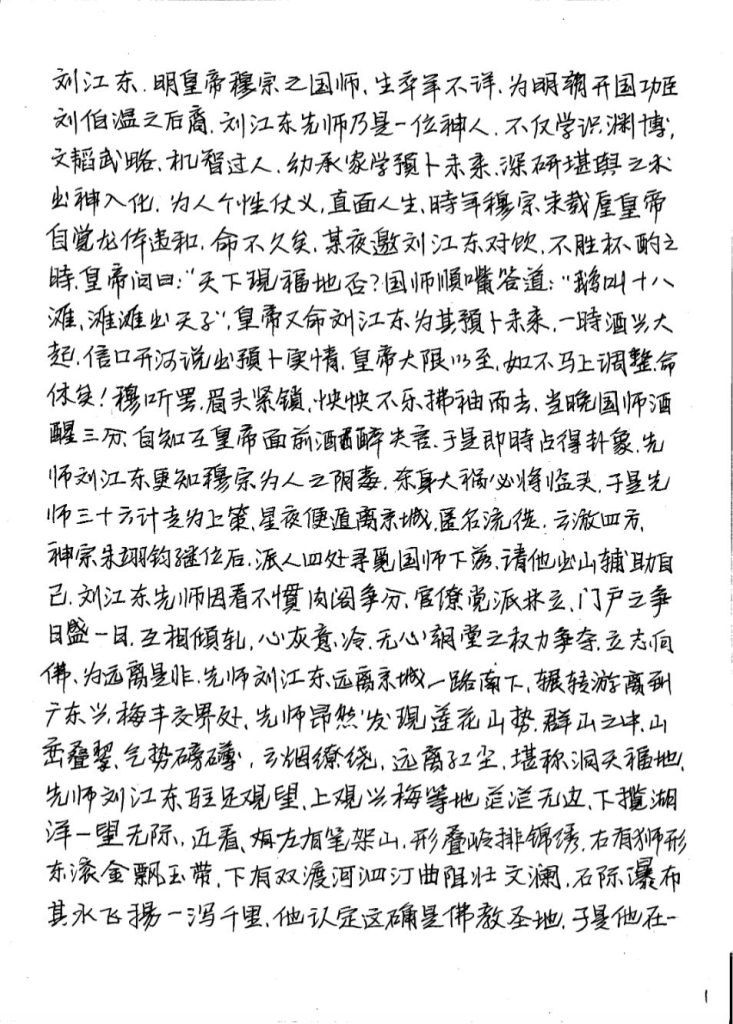 刘江东.明皇帝穆宗之国师,生卒年不详,为明朝开国功臣
刘伯温之后裔.刘江东先师乃是一位神人.不仅学识渊博,
文韬武略.机智过人.幼承家学預卜未来,深研堪舆之术
出神入化.为人个性仗义,直面人生,時年穆宗朱载垕皇帝
自覚龙体违和.命不久矣.某夜邀刘江东对饮.不胜杯酌之
時.皇帝问曰:“天下現福地否?国师順嘴答道:“鵝叫十八
滩,滩滩出天子”,皇帝又命刘江东为其預卜未来,一時酒兴大
起.信口开河说出預卜实情.皇帝大限以至,如不马上调整.命
休矣!穆听罢.眉头紧锁,怏怏不乐拂袖而去.当晚国师酒
醒三分.自知在皇帝面前酒醉失言.于是即時占得卦象.先
师刘江东更知穆宗为人之阴毒.杀身大祸必将临头.于是先
师三十六计走为上策.星夜便遁离京城.匿名流徙.云游四方.
神宗朱翊钧继位后.派人四处寻覓国师下落.请他出山辅助自
己.刘江东先师因看不慣内阁争分.官僚党派林立、门户之争
日盛一日.互相傾轧,心灰意冷.无心朝堂之权力争夺.立志向
佛.为远离是非.先师刘江东远离京城一路南下.辗转游离到
广东兴,梅丰交界处.先师昂然发現莲花山势.群山之中.山
峦叠翠.气势磅礴,云烟缭绕,远离红尘.堪称洞天福地.
先师刘江东驻足观望,上观兴梅等地茫茫无边.下揽湖
洋一望无际,近看、左有笔架山.形叠岭排锦绣.右有狮形
东滚金飘玉带.下有双渡河泗汀曲阻壮文澜.石际瀑布
其水飞揚一泻千里.他认定这确是佛教圣地.于是他在一
1